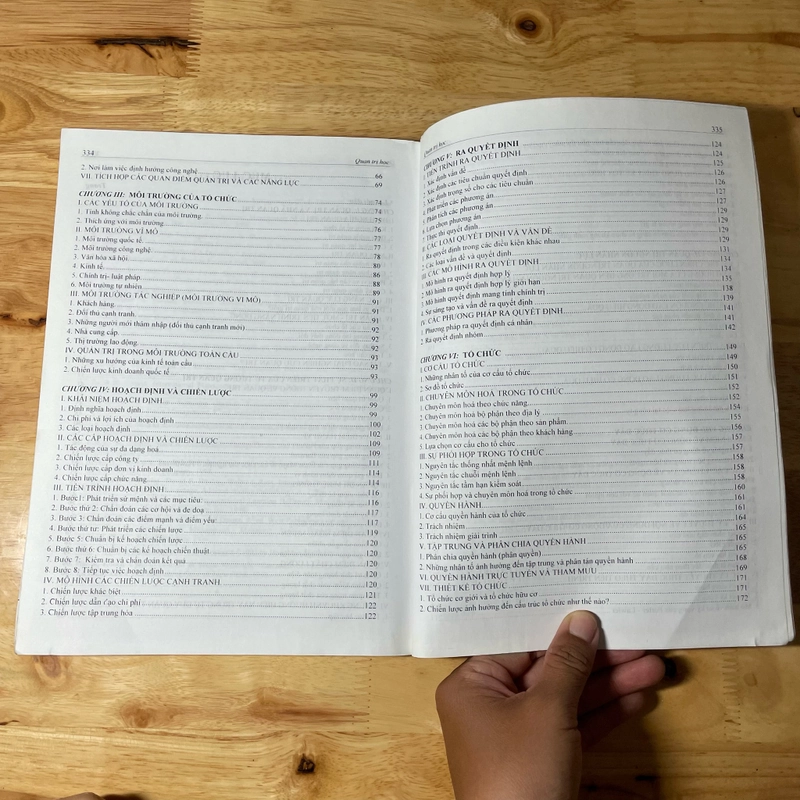 334
Quan trị học
2. Nơi làm việc định hướng công nghệ 66
VII. TÍCH HỢP CÁC QUAN ĐIỂM QUẢN TRỊ VÀ CÁC NĂNG LỰC 69
CHƯƠNG III: MÔI TRƯỜNG CỦA TỔ CHỨC 74
I. CÁC YẾU TỐ CỦA MÔI TRƯỜNG 74
1. Tính không chắc chắn của môi trường 75
2. Thích ứng với môi trường 76
II. MÔI TRƯỜNG VĨ MÔ 77
1. Môi trường quốc tế 77
2. Môi trường công nghệ 78
3. Văn hóa xã hội 80
4. Kinh tế 86
5. Chính trị- luật pháp 88
6. Môi trường tự nhiên 89
III. MÔI TRƯỜNG TÁC NGHIỆP (MÔI TRƯỜNG VI MÔ) 91
1. Khách hàng 91
2. Đối thủ cạnh tranh 91
3. Những người mới thâm nhập (đối thủ cạnh tranh mới) 92
4. Nhà cung cấp 92
5. Thị trường lao động 92
IV. QUẢN TRỊ TRONG MÔI TRƯỜNG TOÀN CẦU 93
1. Những xu hướng của kinh tế toàn cầu 93
2. Chiến lược kinh doanh quốc tế 93
CHƯƠNG IV: HOẠCH ĐỊNH VÀ CHIẾN LƯỢC 99
I. KHÁI NIỆM HOẠCH ĐỊNH 99
1. Định nghĩa hoạch định 99
2. Chi phí và lợi ích của hoạch định 100
3. Các loại hoạch định 102
II. CÁC CẤP HOẠCH ĐỊNH VÀ CHIẾN LƯỢC 109
1. Tác động của sự đa dạng hoá 109
2. Chiến lược cấp công ty 111
3. Chiến lược cấp đơn vị kinh doanh 114
4. Chiến lược cấp chức năng 114
III. TIẾN TRÌNH HOẠCH ĐỊNH 116
1. Bước1: Phát triển sứ mệnh và các mục tiêu: 116
2. Bước thứ 2: Chẩn đoán các cơ hội và đe doạ 117
3. Bước 3: Chẩn đoán các điểm mạnh và điểm yếu 117
4. Bước thứ tư: Phát triển các chiến lược 119
5. Bước 5: Chuẩn bị kế hoạch chiến lược 120
6. Bước thứ 6: Chuẩn bị các kế hoạch chiến thuật 120
7. Bước 7: Kiểm tra và chẩn đoán kết quả 120
8. Bước 8: Tiếp tục việc hoạch định 120
IV. MÔ HÌNH CÁC CHIẾN LƯỢC CẠNH TRANH 120
1. Chiến lược khác biệt 121
2. Chiến lược dẫn đạo chi phí 122
3. Chiến lược tập trung hóa 122
Quan trị học
335
CHƯƠNG V: RA QUYẾT ĐỊNH 124
I. TIẾN TRÌNH RA QUYẾT ĐỊNH 124
1. Xác định vấn đề 125
2. Xác định các tiêu chuẩn quyết định 126
3. Xác định trọng số cho các tiêu chuẩn 126
4. Phát triển các phương án 127
5. Phân tích các phương án 127
6. Lựa chọn phương án 127
7. Thực thi quyết định 129
II. CÁC LOẠI QUYẾT ĐỊNH VÀ VẤN ĐỀ 129
1. Ra quyết định trong các điều kiện khác nhau 129
2. Các loại vấn đề và quyết định 131
III. CÁC MÔ HÌNH RA QUYẾT ĐỊNH 134
1. Mô hình ra quyết định hợp lý 134
2. Mô hình ra quyết định hợp lý giới hạn 135
3. Mô hình quyết định mang tính chính trị 138
4. Sự sáng tạo và vấn đề ra quyết định 139
IV. CÁC PHƯƠNG PHÁP RA QUYẾT ĐỊNH 141
1. Phương pháp ra quyết định cá nhân 141
2. Ra quyết định nhóm 142
CHƯƠNG VI: TỔ CHỨC 149
I. CƠ CẤU TỔ CHỨC 149
1. Những nhân tố của cơ cấu tổ chức 150
2. Sơ đồ tổ chức 151
II. CHUYÊN MÔN HOÁ TRONG TỔ CHỨC 152
1. Chuyên môn hoá theo chức năng 152
2. Chuyên môn hoá bộ phận theo địa lý 154
3. Chuyên môn hoá các bộ phận theo sản phẩm 155
4. Chuyên môn hoá các bộ phận theo khách hàng 156
5. Lựa chọn cơ cấu cho tổ chức 157
III. SỰ PHỐI HỢP TRONG TỔ CHỨC 157
1. Nguyên tắc thống nhất mệnh lệnh 158
2. Nguyên tắc chuỗi mệnh lệnh 158
3. Nguyên tắc tầm hạn kiểm soát 158
4. Sự phối hợp và chuyên môn hoá trong tổ chức 160
IV. QUYỀN HÀNH 161
1. Cơ cấu quyền hành của tổ chức 161
2. Trách nhiệm 164
3. Trách nhiệm giải trình 165
V. TẬP TRUNG VÀ PHÂN CHIA QUYỀN HÀNH 165
1. Phân chia quyền hành (phân quyền) 165
2. Những nhân tố ảnh hưởng đến tập trung và phân tán quyền hành 168
VI. QUYỀN HÀNH TRỰC TUYẾN VÀ THAM MƯU 169
VII. THIẾT KẾ TỔ CHỨC 171
1. Tổ chức cơ giới và tổ chức hữu cơ 171
2. Chiến lược ảnh hưởng đến cấu trúc tổ chức như thế nào? 172